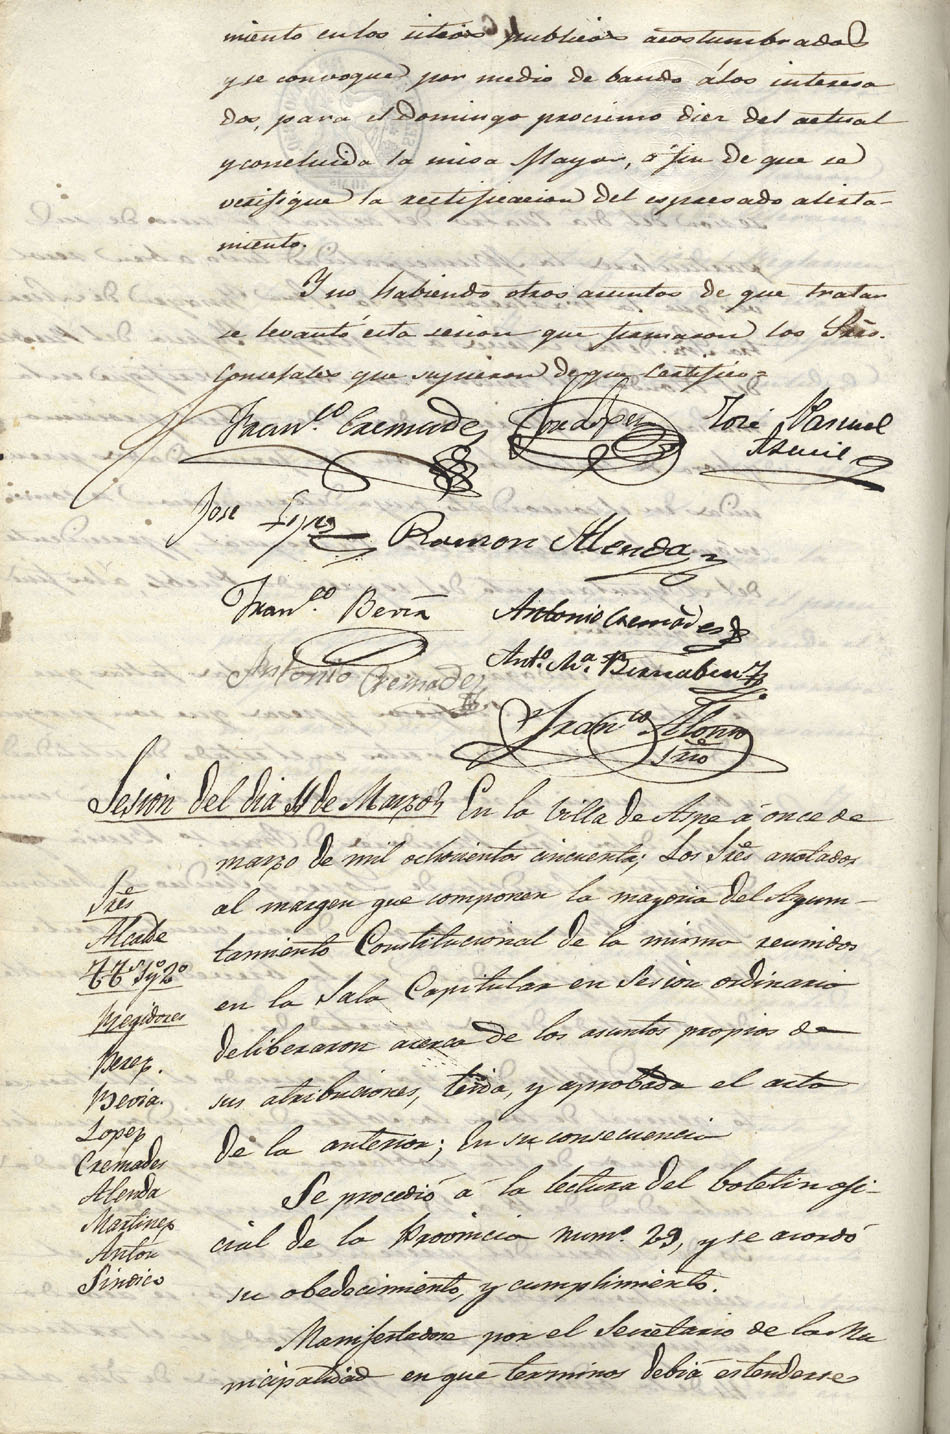 miento en los sitios publicos acostumbrados
y se convoque por medio de bando á los interesa
dos, para el domingo procsimo diez del actual
y concluida la misa Mayor, á fin de que se
verifique la rectificacion del espresado alista-
miento.
Y no habiendo otros asuntos de que tratar
se levantó esta sesion que firmaron los Sres.
Concejales que supieron de que Certifico=
Fran.co Cremades
José Lopez
José Pascual
Asencio
José Lopez
Ramon Alenda
Fran.co Bevia
Antonio Cremades
Antonio Cremades
Anto. Ma. Bernabeu
Fran.co Alonso
Srio
Sesion del dia 11 de Marzo
En la Villa de Aspe á once de
marzo de mil ochocientos cincuenta; Los Sres anotados
al margen que componen la mayoria del Ayun-
tamiento Constitucional de la misma reunidos
en la Sala Capitular en Sesion ordinaria
deliberaron acerca de los asuntos propios de
sus atribuciones, leida, y aprobada el acta
de la anterior; En su consecuencia
Sres
Alcalde
TTs 1o y 2o
Regidores
Perez.
Bevia.
Lopez
Cremades
Alenda
Martinez
Anton
Sindico
Se procedió á la lectura del boletin ofi-
cial de la Provincia num.o 29, y se acordó
su obedecimiento, y cumplimiento.
Manifestadose por el Secretario de la Mu
nicipalidad en que terminos debia estenderse